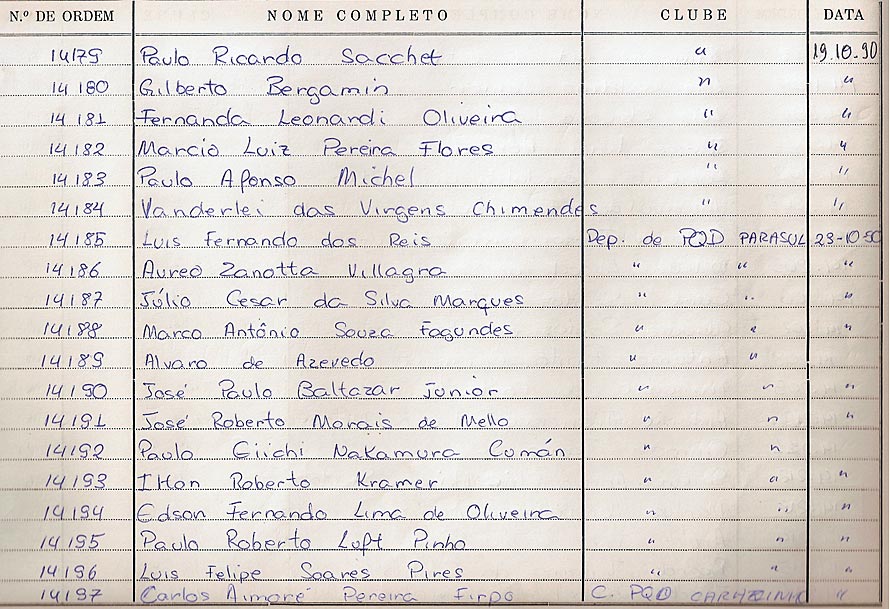 N.º DE ORDEM NOME COMPLETO CLUBE DATA
14179 Paulo Ricardo Sacchet " 19.10.90
14180 Gilberto Bergamin " "
14181 Fernanda Leonardi Oliveira " "
14182 Marcio Luiz Pereira Flores " "
14183 Paulo Afonso Michel " "
14184 Vanderlei das Virgens Chimendes " "
14185 Luis Fernando dos Reis Dep. de PQD PARASUL 23-10-90
14186 Aureo Zanotta Villagra " " "
14187 Júlio Cesar da Silva Marques " " "
14188 Marco Antônio Souza Fagundes " " "
14189 Alvaro de Azevedo " " "
14190 José Paulo Baltazar Junior " " "
14191 José Roberto Morais de Mello " " "
14192 Paulo Giichi Nakamura Comán " "
14193 Ilton Roberto Kramer " " "
14194 Edson Fernando Lima de Oliveira " " "
14195 Paulo Roberto Luft Pinho " " "
14196 Luis Felipe Soares Pires " " "
14197 Carlos Aimoré Pereira Firpo C. PQD "